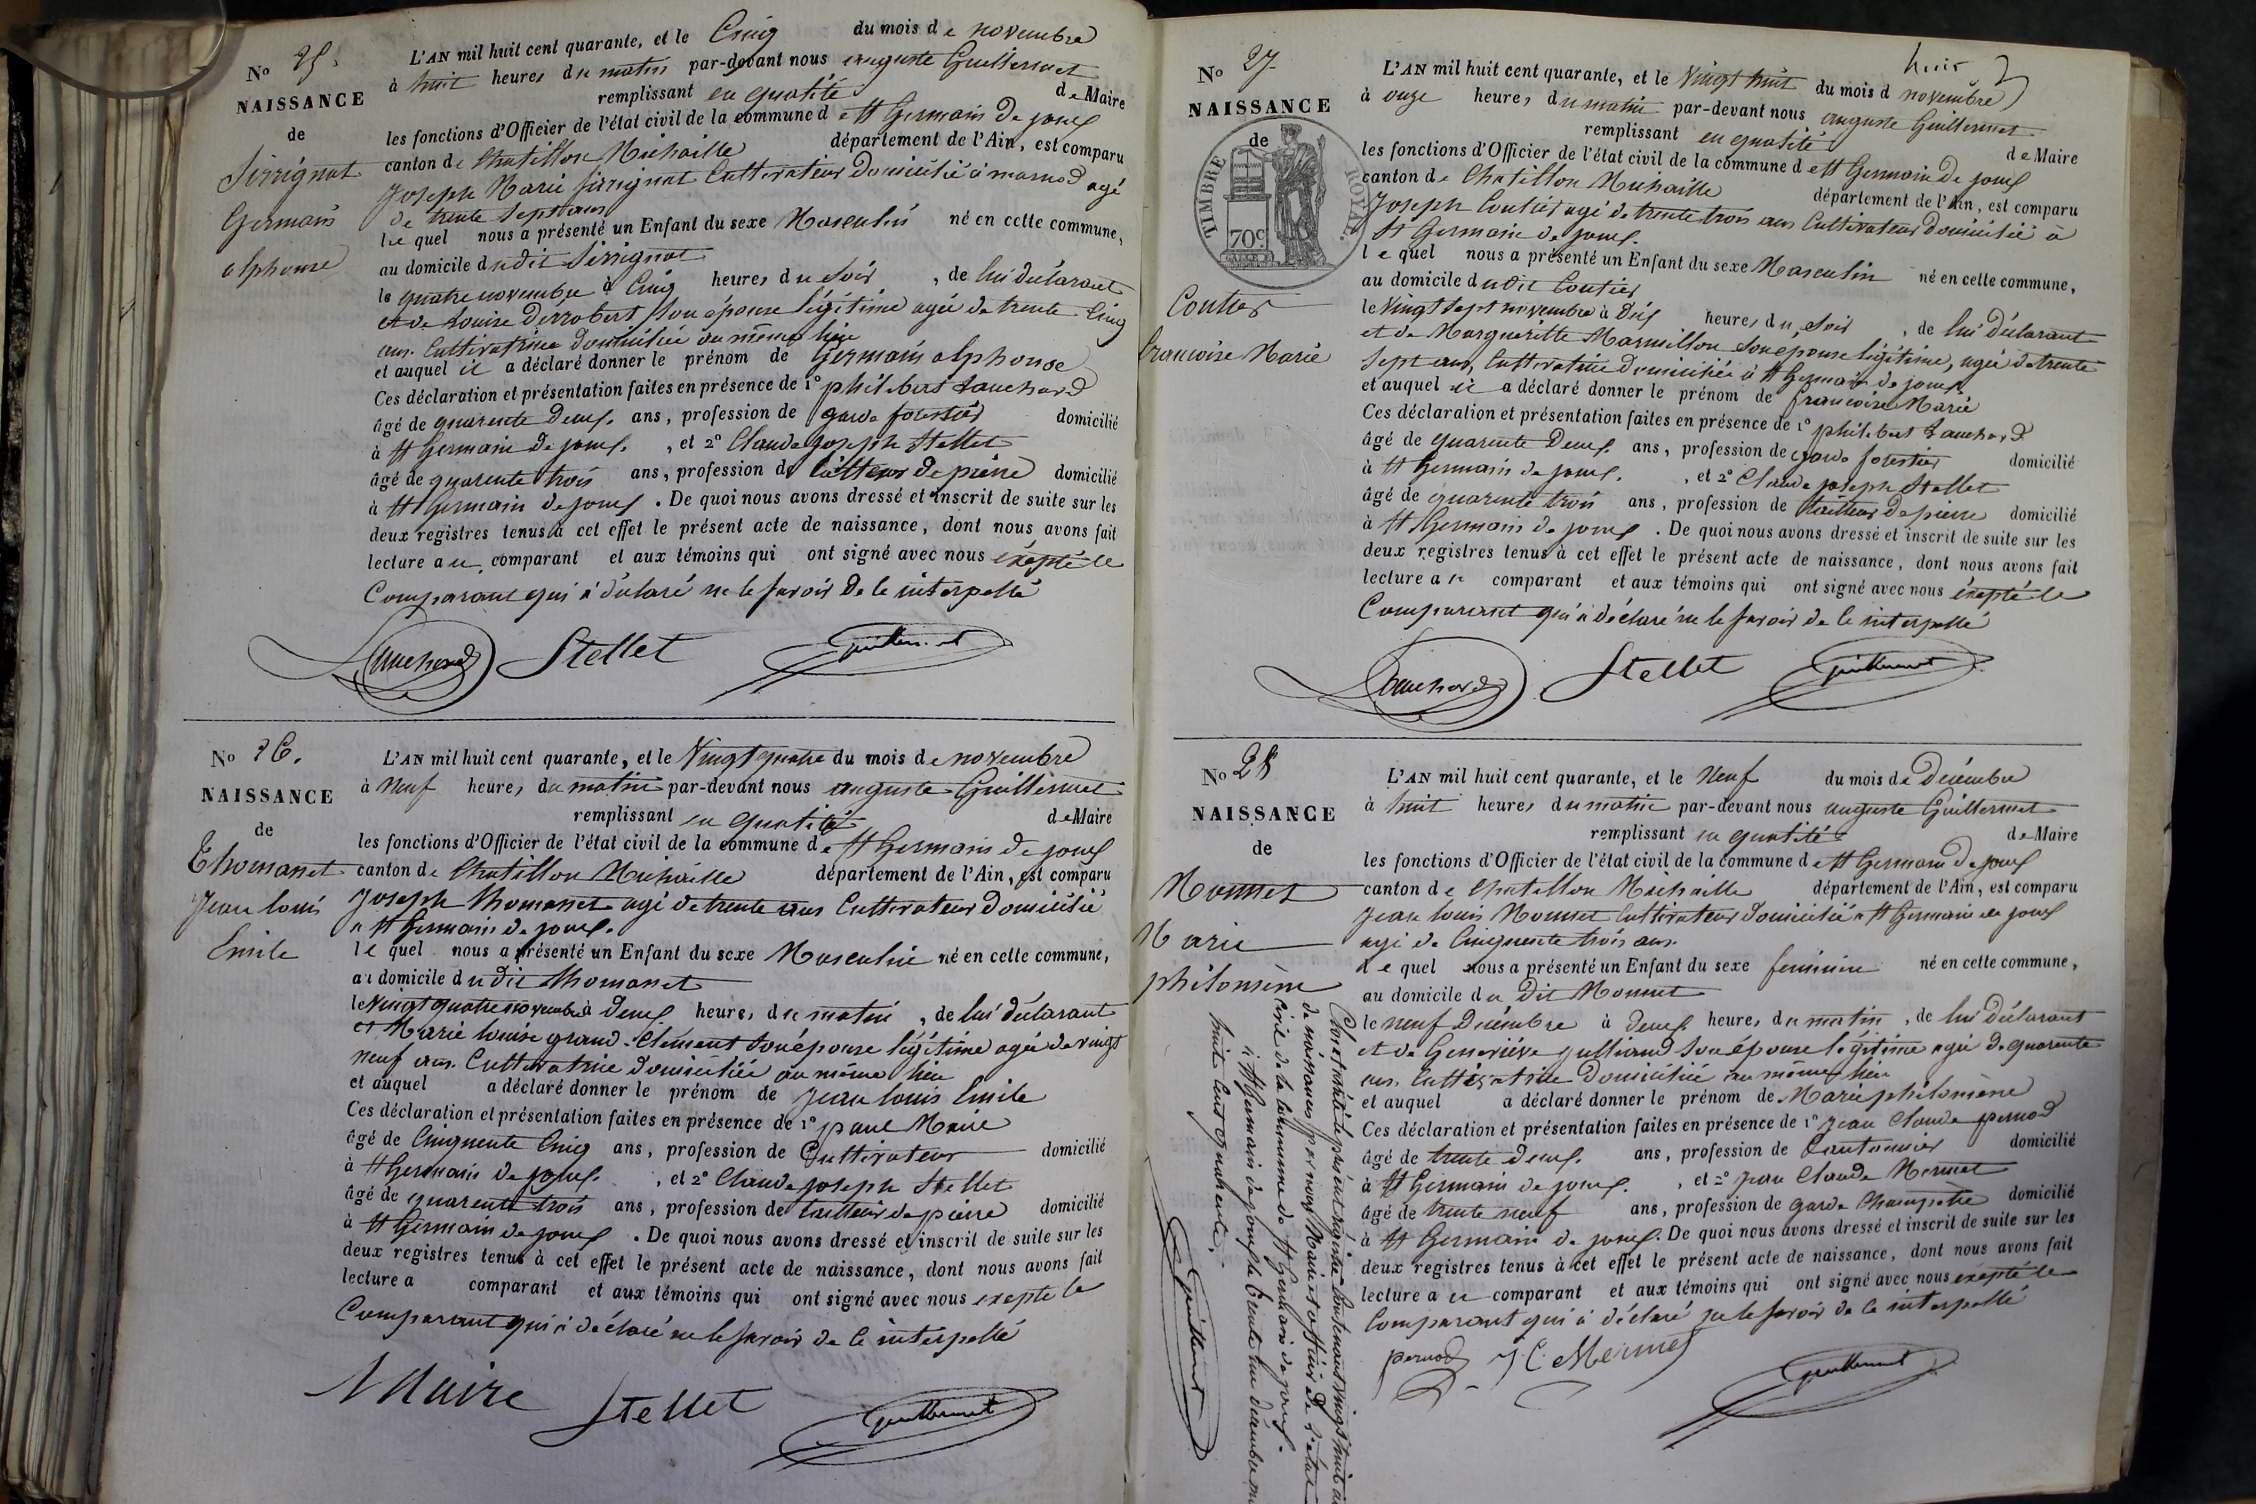 No 25.
NAISSANCE
de
Sirrignat
Germain
alphonse
L'AN mil huit cent quarante, et le Cinq du mois de novembre
à huit heures du matin par-devant nous auguste Guillermet
remplissant en qualité de Maire
les fonctions d'Officier de l'état civil de la commune de St Germain de joux
canton de Chatillon Michaille département de l'Ain, est comparu
Joseph Marie Sirrignat Cultivateur Domicilié à marnod agé
de trente sept ans
le quel nous a présenté un Enfant du sexe Masculin né en cette commune,
au domicile du dit Sirrignat
le quatre novembre à Cinq heures du Soir, de lui déclarant
et de Louise Derrobert Son épouse légitime agée de trente Cinq
ans. Cultivatrice Domiciliée au même lieu
et auquel il a déclaré donner le prénom de Germain alphonse
Ces déclaration et présentation faites en présence de 1° philibert Lauchard
âgé de quarente Deux ans, profession de garde forestier domicilié
à St Germain de joux, et 2° Claude joseph Stellet
âgé de quarente trois ans, profession de tailleur de pierre domicilié
à St Germain de joux. De quoi nous avons dressé et inscrit de suite sur les
deux registres tenus à cet effet le présent acte de naissance, dont nous avons fait
lecture au comparant et aux témoins qui ont signé avec nous éxepté le
Comparant qui à déclaré ne le savoir de ce interpellé
Lauchard Stellet Guillermet
No 26.
NAISSANCE
de
Thomasset
Jean louis
Emile
L'AN mil huit cent quarante, et le Vingt quatre du mois de novembre
à Neuf heures du matin par-devant nous auguste Guillermet
remplissant en qualité de Maire
les fonctions d'Officier de l'état civil de la commune de St Germain de joux
canton de Chatillon Michaille département de l'Ain, est comparu
Joseph Thomasset agé de trente ans Cultivateur Domicilié
a St Germain de joux.
le quel nous a présenté un Enfant du sexe Masculin né en cette commune,
au domicile du dit Thomasset
le Vingt quatre novembre à Deux heures du matin, de lui déclarant
et Marie louise grand-Clément Son épouse légitime agée de vingt
neuf ans. Cultivatrice Domiciliée au même lieu
et auquel a déclaré donner le prénom de Jean louis Emile
Ces déclaration et présentation faites en présence de 1° paul Maire
âgé de Cinquente Cinq ans, profession de Cultivateur domicilié
à St Germain de joux, et 2° Claude joseph Stellet
âgé de quarente trois ans, profession de tailleur de pierre domicilié
à St Germain de joux. De quoi nous avons dressé et inscrit de suite sur les
deux registres tenus à cet effet le présent acte de naissance, dont nous avons fait
lecture a comparant et aux témoins qui ont signé avec nous exepté le
Comparant qui à déclaré ne le savoir de ce interpellé
Maire Stellet Guillermet
huit
No 27
NAISSANCE
de
TIMBRE ROYAL.
70c
Coutier
francoise Marie
L'AN mil huit cent quarante, et le Vingt huit du mois d novembre
à onze heures du matin par-devant nous auguste Guillermet
remplissant en qualité de Maire
les fonctions d'Officier de l'état civil de la commune de St Germain de joux
canton de Chatillon Michaille département de l'Ain, est comparu
Joseph Coutier agé de trente trois ans Cultivateur Domicilié à
St Germain de joux.
le quel nous a présenté un Enfant du sexe Masculin né en cette commune,
au domicile du dit Coutier
le Vingt Sept novembre à Dix heures du Soir, de lui déclarant
et de Marguerite Marmillon Son épouse légitime, agée de trente
Sept ans, Cultivatrice Domiciliée à St Germain de joux
et auquel il a déclaré donner le prénom de francoise Marie
Ces déclaration et présentation faites en présence de 1° philibert Lauchard
âgé de quarente Deux ans, profession de garde forestier domicilié
à St Germain de joux, et 2° Claude joseph Stellet
âgé de quarente trois ans, profession de tailleur de pierre domicilié
à St Germain de joux. De quoi nous avons dressé et inscrit de suite sur les
deux registres tenus à cet effet le présent acte de naissance, dont nous avons fait
lecture a comparant et aux témoins qui ont signé avec nous éxepté le
Comparant qui à déclaré ne le savoir de ce interpellé
Lauchard Stellet Guillermet
No 28
NAISSANCE
de
Monnet
Marie
philomène
L'AN mil huit cent quarante, et le Neuf du mois de Décembre
à huit heures du matin par-devant nous auguste Guillermet
remplissant en qualité de Maire
les fonctions d'Officier de l'état civil de la commune de St Germain de joux
canton de Chatillon Michaille département de l'Ain, est comparu
Jean louis Monnet Cultivateur Domicilié a St Germain de joux
agé de Cinquente trois ans.
le quel nous a présenté un Enfant du sexe feminin né en cette commune,
au domicile du Dit Monnet
le neuf Décembre à deux heures du matin, de lui déclarant
et de Geneviéve gulliand Son épouse légitime agée de quarente
ans. Cultivatrice Domiciliée au même lieu
et auquel a déclaré donner le prénom de Marie philomène
Ces déclaration et présentation faites en présence de 1° Jean Claude pernod
âgé de trente deux ans, profession de Cantonnier domicilié
à St Germain de joux, et 2° jean Claude Mermet
âgé de trente neuf ans, profession de garde Champetre domicilié
à St Germain de joux. De quoi nous avons dressé et inscrit de suite sur les
deux registres tenus à cet effet le présent acte de naissance, dont nous avons fait
lecture au comparant et aux témoins qui ont signé avec nous exepté le
Comparant qui à déclaré ne le savoir de ce interpellé
pernod J C Mermet Guillermet
Clos et arrêté le présent régistre Contenant vingt huit
de naissances par nous Maire et officier de l'état
civil de la Commune de St Germain de joux.
a St Germain de joux le trente un décembre mil
huit Cent quarente.
Guillermet